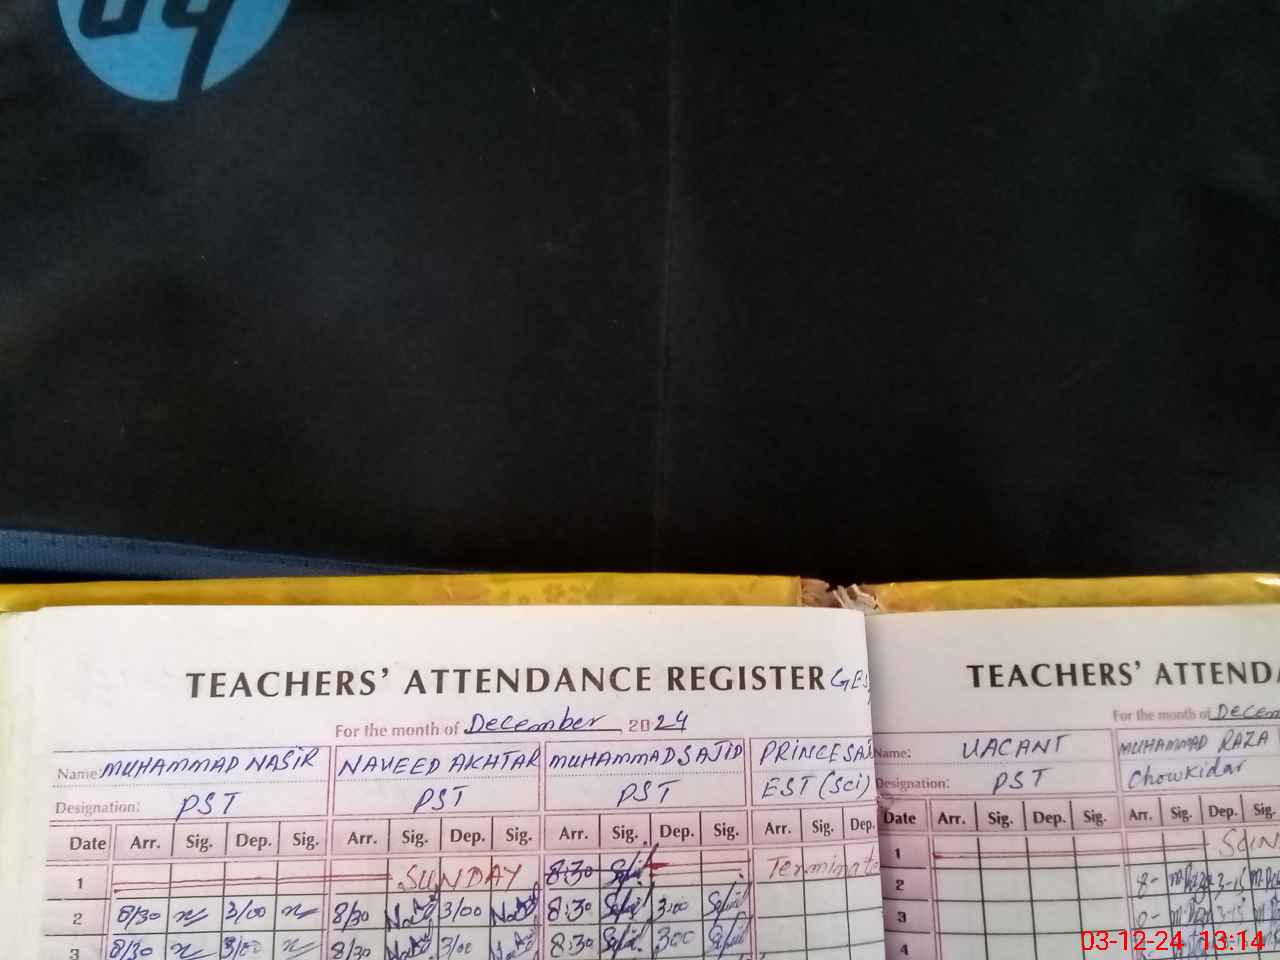 hp
TEACHERS' ATTENDANCE REGISTER GES
For the month of December 2024
Name: MUHAMMAD NASIR NAVEED AKHTAR MUHAMMAD SAJID PRINCE SAI
Designation: PST PST PST EST (Sci)
Date Arr. Sig. Dep. Sig. Arr. Sig. Dep. Sig. Arr. Sig. Dep. Sig. Arr. Sig. Dep.
1 SUNDAY 8:30 Terminate
2 8/30 3/00 8/30 3/00 8:30 3:00
3 8/30 3/00 8/30 3/00 8:30 300
TEACHERS' ATTENDA
For the month of Decem
Name: VACANT MUHAMMAD RAZA
Designation: PST Chowkidar
Date Arr. Sig. Dep. Sig. Arr. Sig. Dep. Sig.
1 SUN
2 8- 3-15
3 8- 3-15
4
03-12-24 13:14